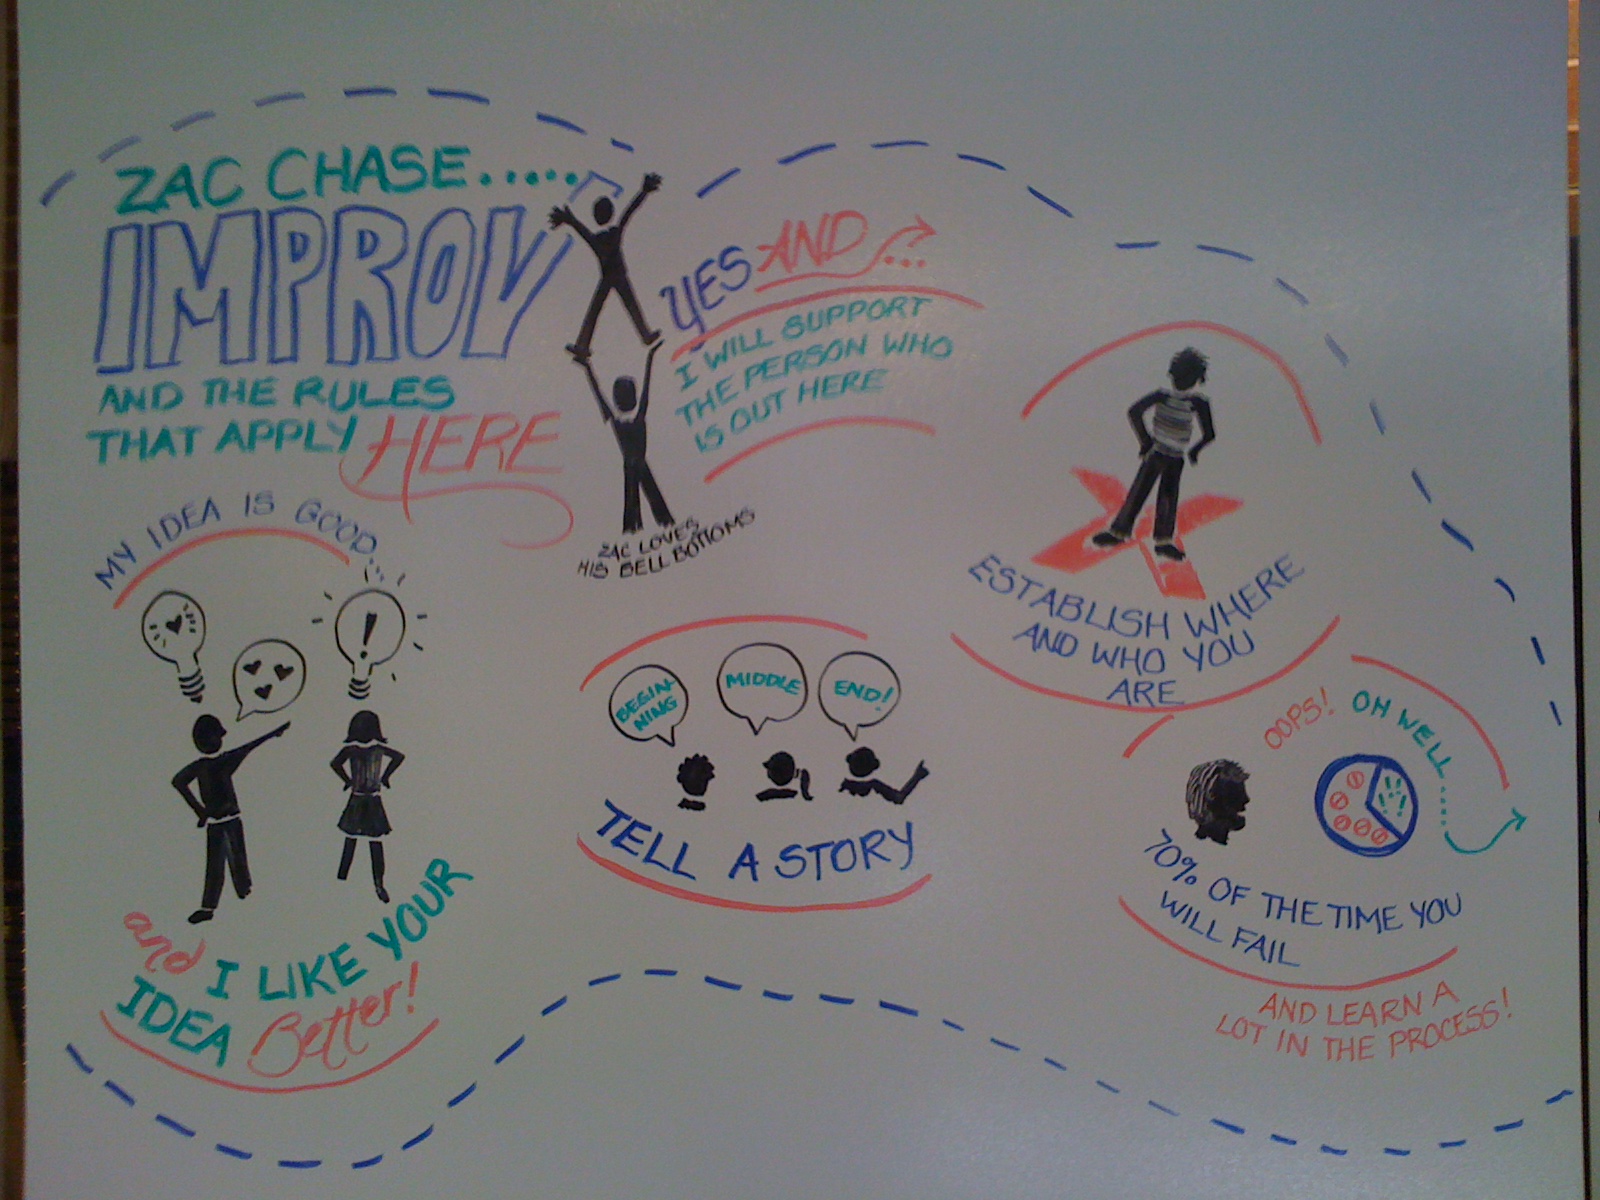 ZAC CHASE......
IMPROV
AND THE RULES
THAT APPLY HERE
YES AND ...
I WILL SUPPORT
THE PERSON WHO
IS OUT HERE
ZAC LOVES
HIS BELL BOTTOMS
MY IDEA IS GOOD...
!
and I LIKE YOUR
IDEA Better!
BEGIN-
NING
MIDDLE
END!
TELL A STORY
ESTABLISH WHERE
AND WHO YOU
ARE
OOPS! OH WELL......
70% OF THE TIME YOU
WILL FAIL
AND LEARN A
LOT IN THE PROCESS!